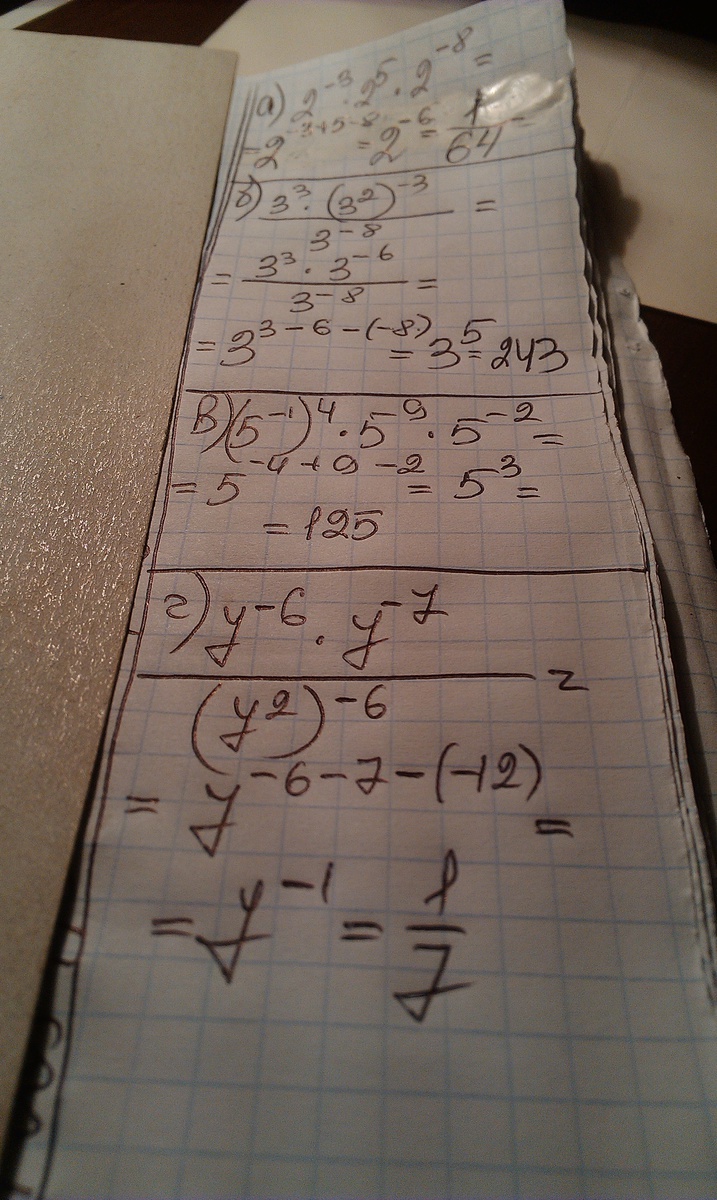 а) 2⁻³ · 2⁵ · 2⁻⁸ =
= 2⁻³⁺⁵⁻⁸ = 2⁻⁶ = 1/64 =
б) 3³ · (3²)⁻³ / 3⁻⁸ =
= 3³ · 3⁻⁶ / 3⁻⁸ =
= 3^(3-6-(-8)) = 3⁵ = 243
в) (5⁻¹)⁴ · 5⁹ · 5⁻² =
= 5⁻⁴⁺⁹⁻² = 5³ =
= 125
г) y⁻⁶ · y⁻⁷ / (y²)⁻⁶ =
= y^(-6-7-(-12)) =
= y⁻¹ = 1/y